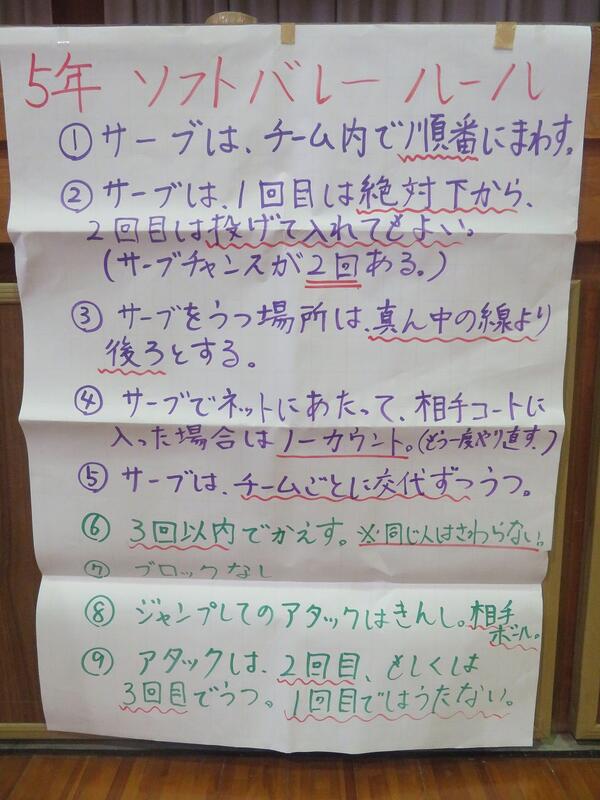 5年 ソフトバレー ルール
① サーブは、チーム内で順番にまわす。
② サーブは、1回目は絶対下から、
2回目は投げて入れてもよい。
(サーブチャンスが2回ある。)
③ サーブをうつ場所は、真ん中の線より
後ろとする。
④ サーブでネットにあたって、相手コートに
入った場合はノーカウント。(もう一度やり直す。)
⑤ サーブは、チームごとに交代ずつうつ。
⑥ 3回以内でかえす。※同じ人はさわらない。
⑦ ブロックなし
⑧ ジャンプしてのアタックはきんし。相手
ボール。
⑨ アタックは、2回目、もしくは
3回目でうつ。1回目ではうたない。